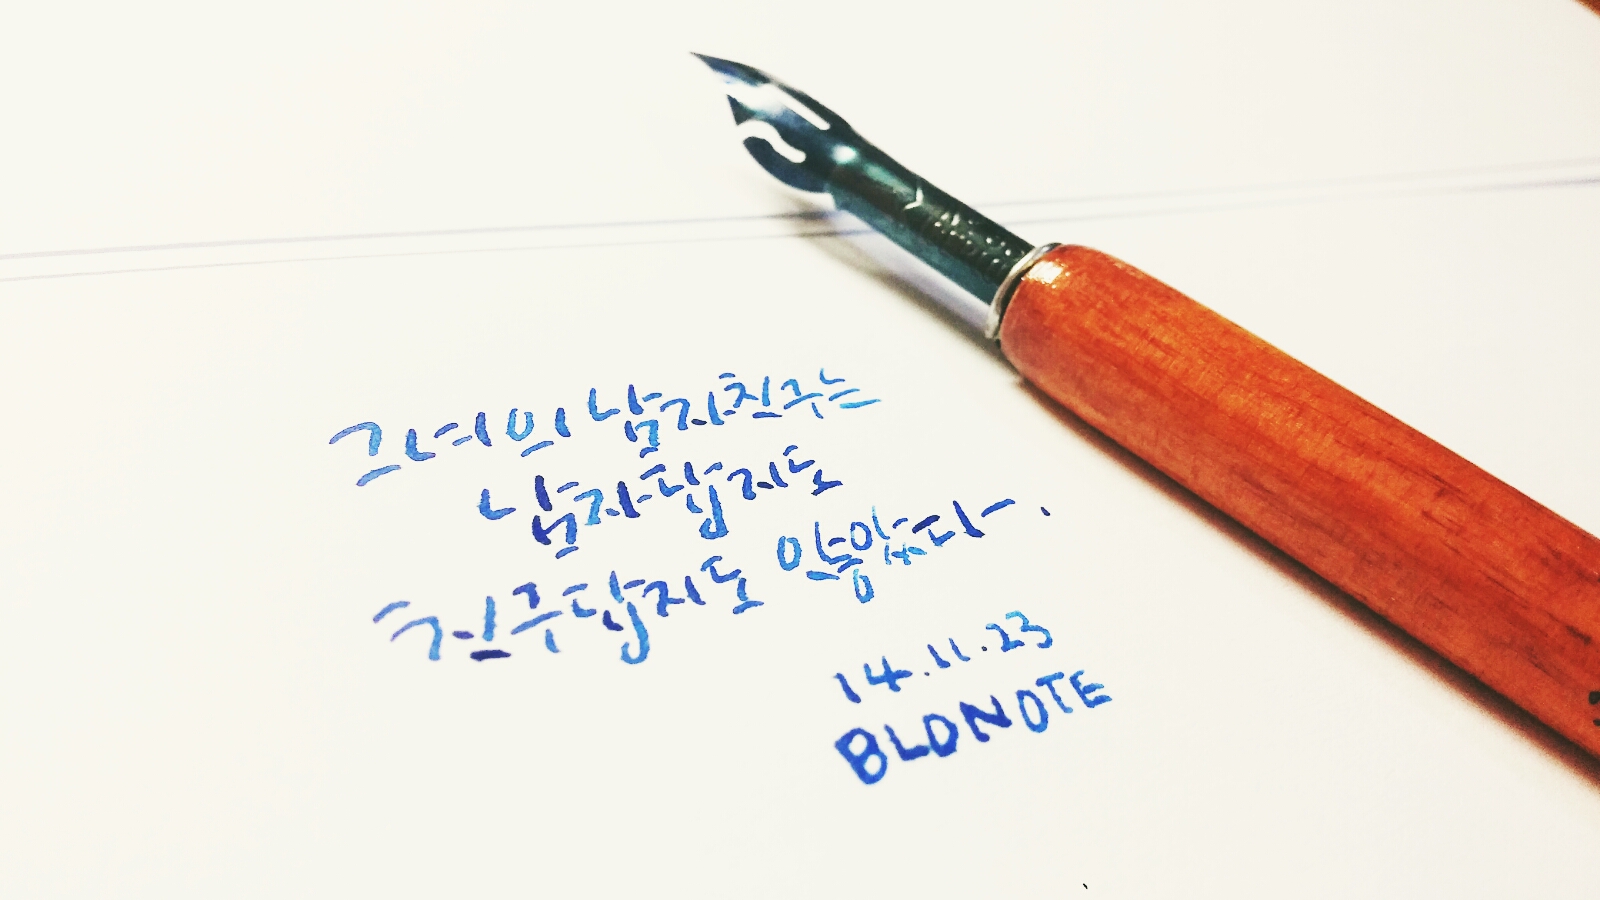 그녀의 남자친구는
남자답지도
친구답지도 않았다.
14.11.23
BLONOTE